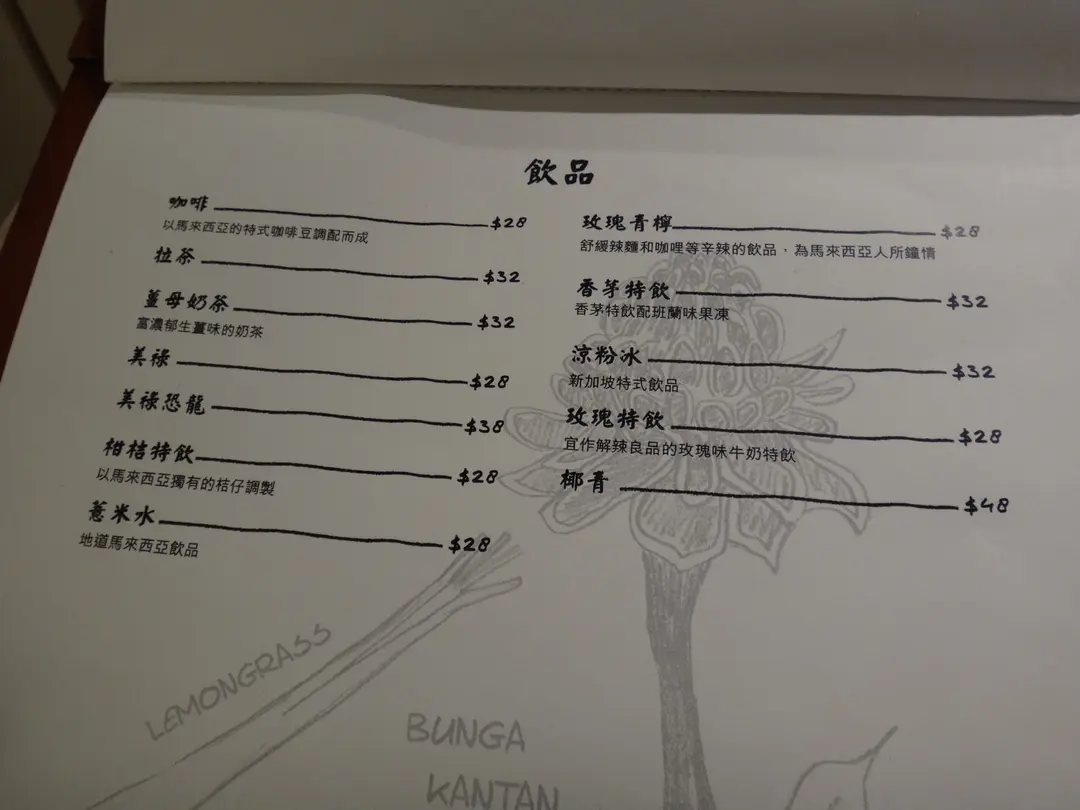 飲品
咖啡 $28
以馬來西亞的特式咖啡豆調配而成
拉茶 $32
薑母奶茶 $32
富濃郁生薑味的奶茶
美祿 $28
美祿恐龍 $38
柑桔特飲 $28
以馬來西亞獨有的桔仔調製
薏米水 $28
地道馬來西亞飲品
玫瑰青檸 $28
舒緩辣麵和咖哩等辛辣的飲品，為馬來西亞人所鐘情
香茅特飲 $32
香茅特飲配班蘭味果凍
涼粉冰 $32
新加坡特式飲品
玫瑰特飲 $28
宜作解辣良品的玫瑰味牛奶特飲
椰青 $48
LEMONGRASS
BUNGA
KANTAN